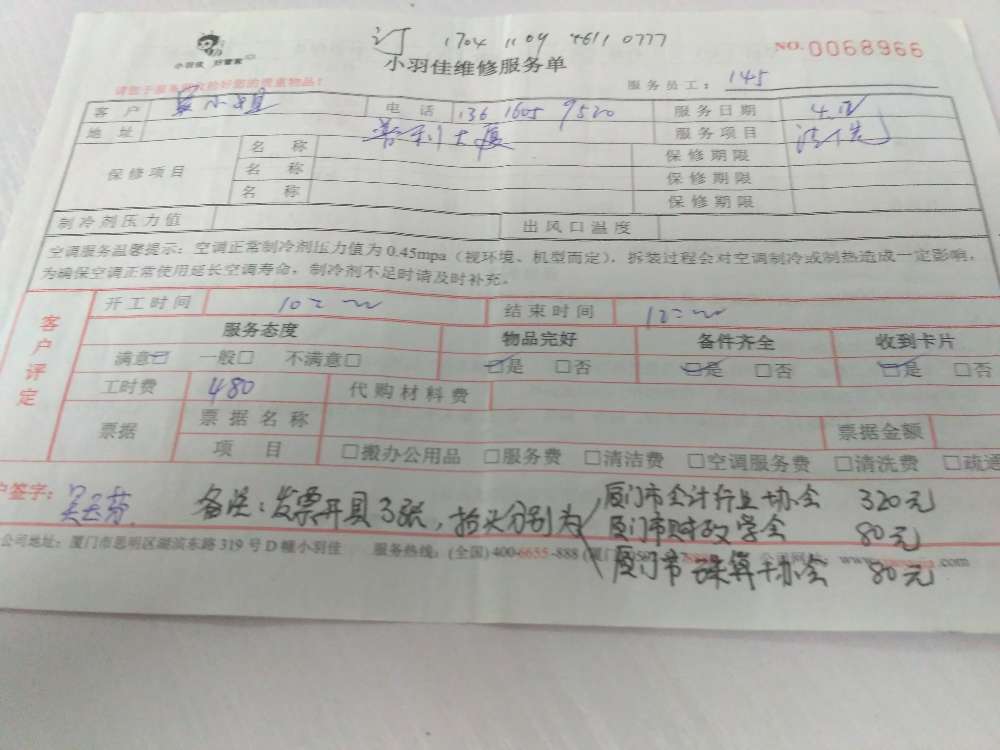 订 1704 1109 2611 0777
小羽佳 好管家
小羽佳维修服务单
NO. 0068966
请您于服务前收拾好您的贵重物品!
服务员工: 145
客户 吴小姐 电话 136 1605 9520 服务日期
地址 服务项目 清洗
保修项目 名称 保修期限
名称 保修期限
名称 保修期限
制冷剂压力值 出风口温度
空调服务温馨提示:空调正常制冷剂压力值为0.45mpa(视环境、机型而定),拆装过程会对空调制冷或制热造成一定影响,
为确保空调正常使用延长空调寿命,制冷剂不足时请及时补充。
客户评定
开工时间 结束时间
服务态度 物品完好 备件齐全 收到卡片
满意☑ 一般□ 不满意□ ☑是 □否 ☑是 □否 ☑是 □否
工时费 480 代购材料费
票据 票据名称 票据金额
项目 □搬办公用品 □服务费 □清洁费 □空调服务费 □清洗费 □疏通
户签字: 备注:发票开具3张,抬头分别为
厦门市会计行业协会 320元
厦门市财政学会 80元
厦门市珠算协会 80元
公司地址:厦门市思明区湖滨东路319号D幢小羽佳 服务热线:(全国)400-6655-888